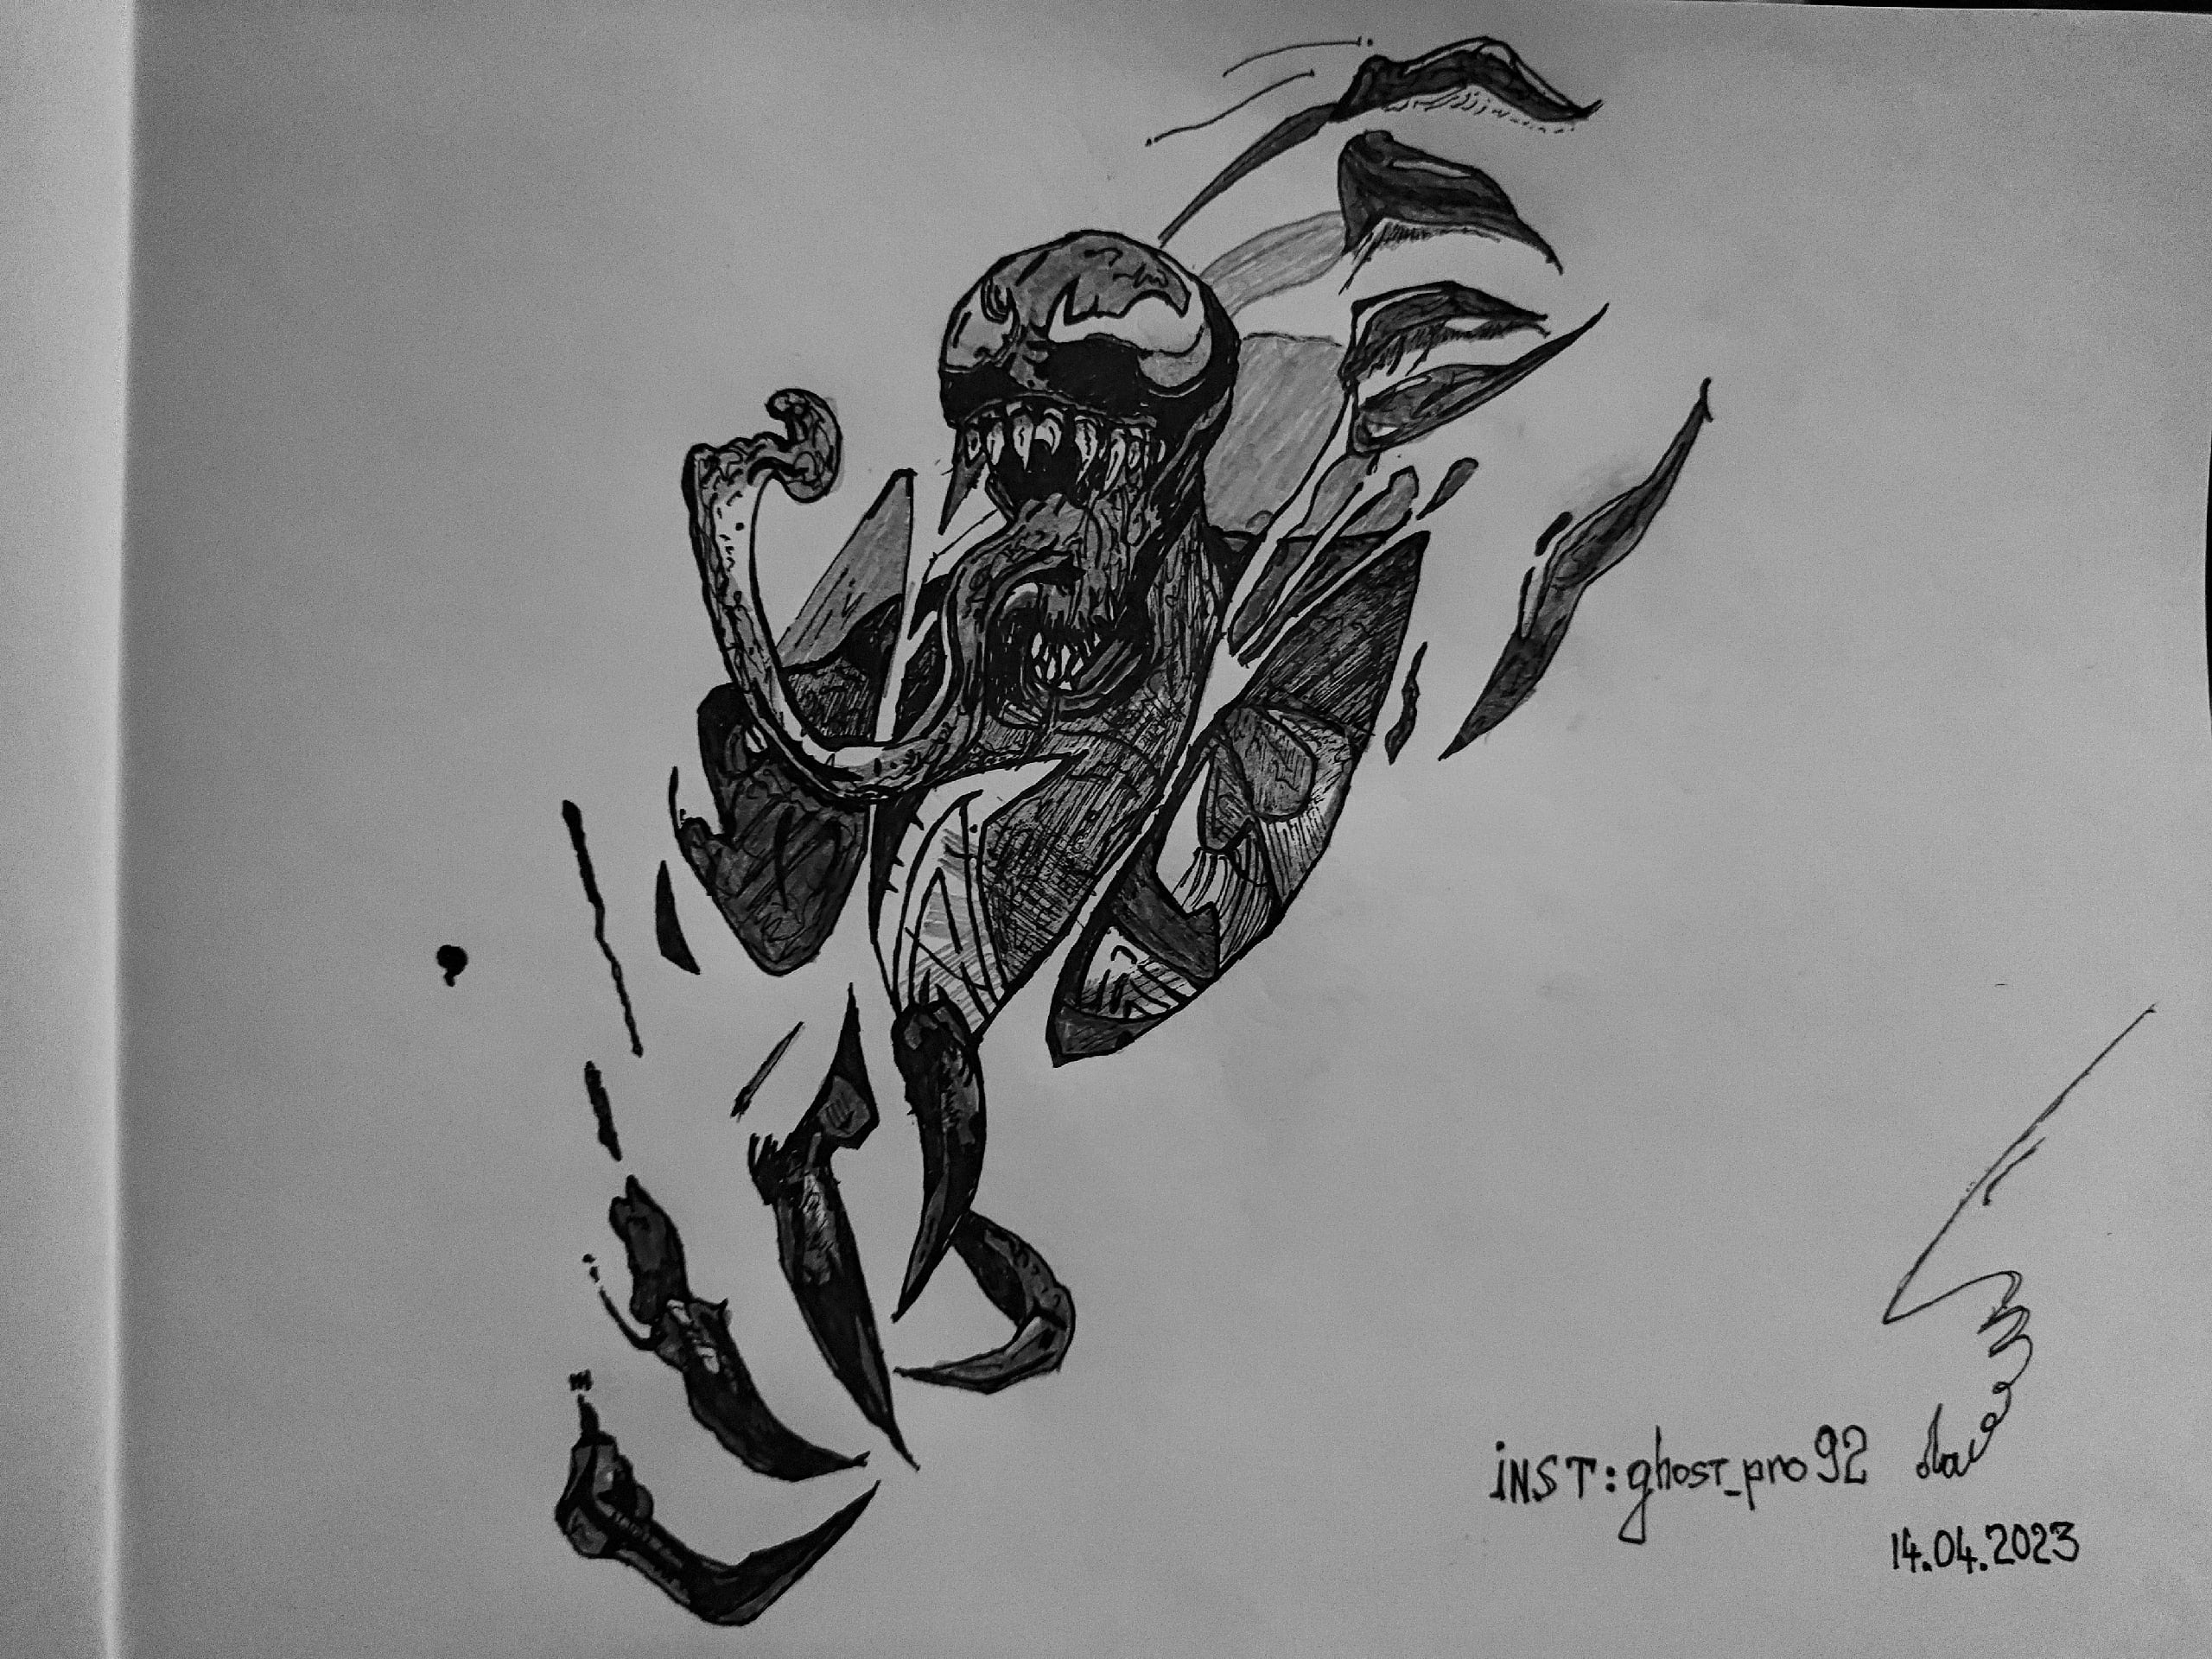 iNST: ghost_pro92
14.04.2023